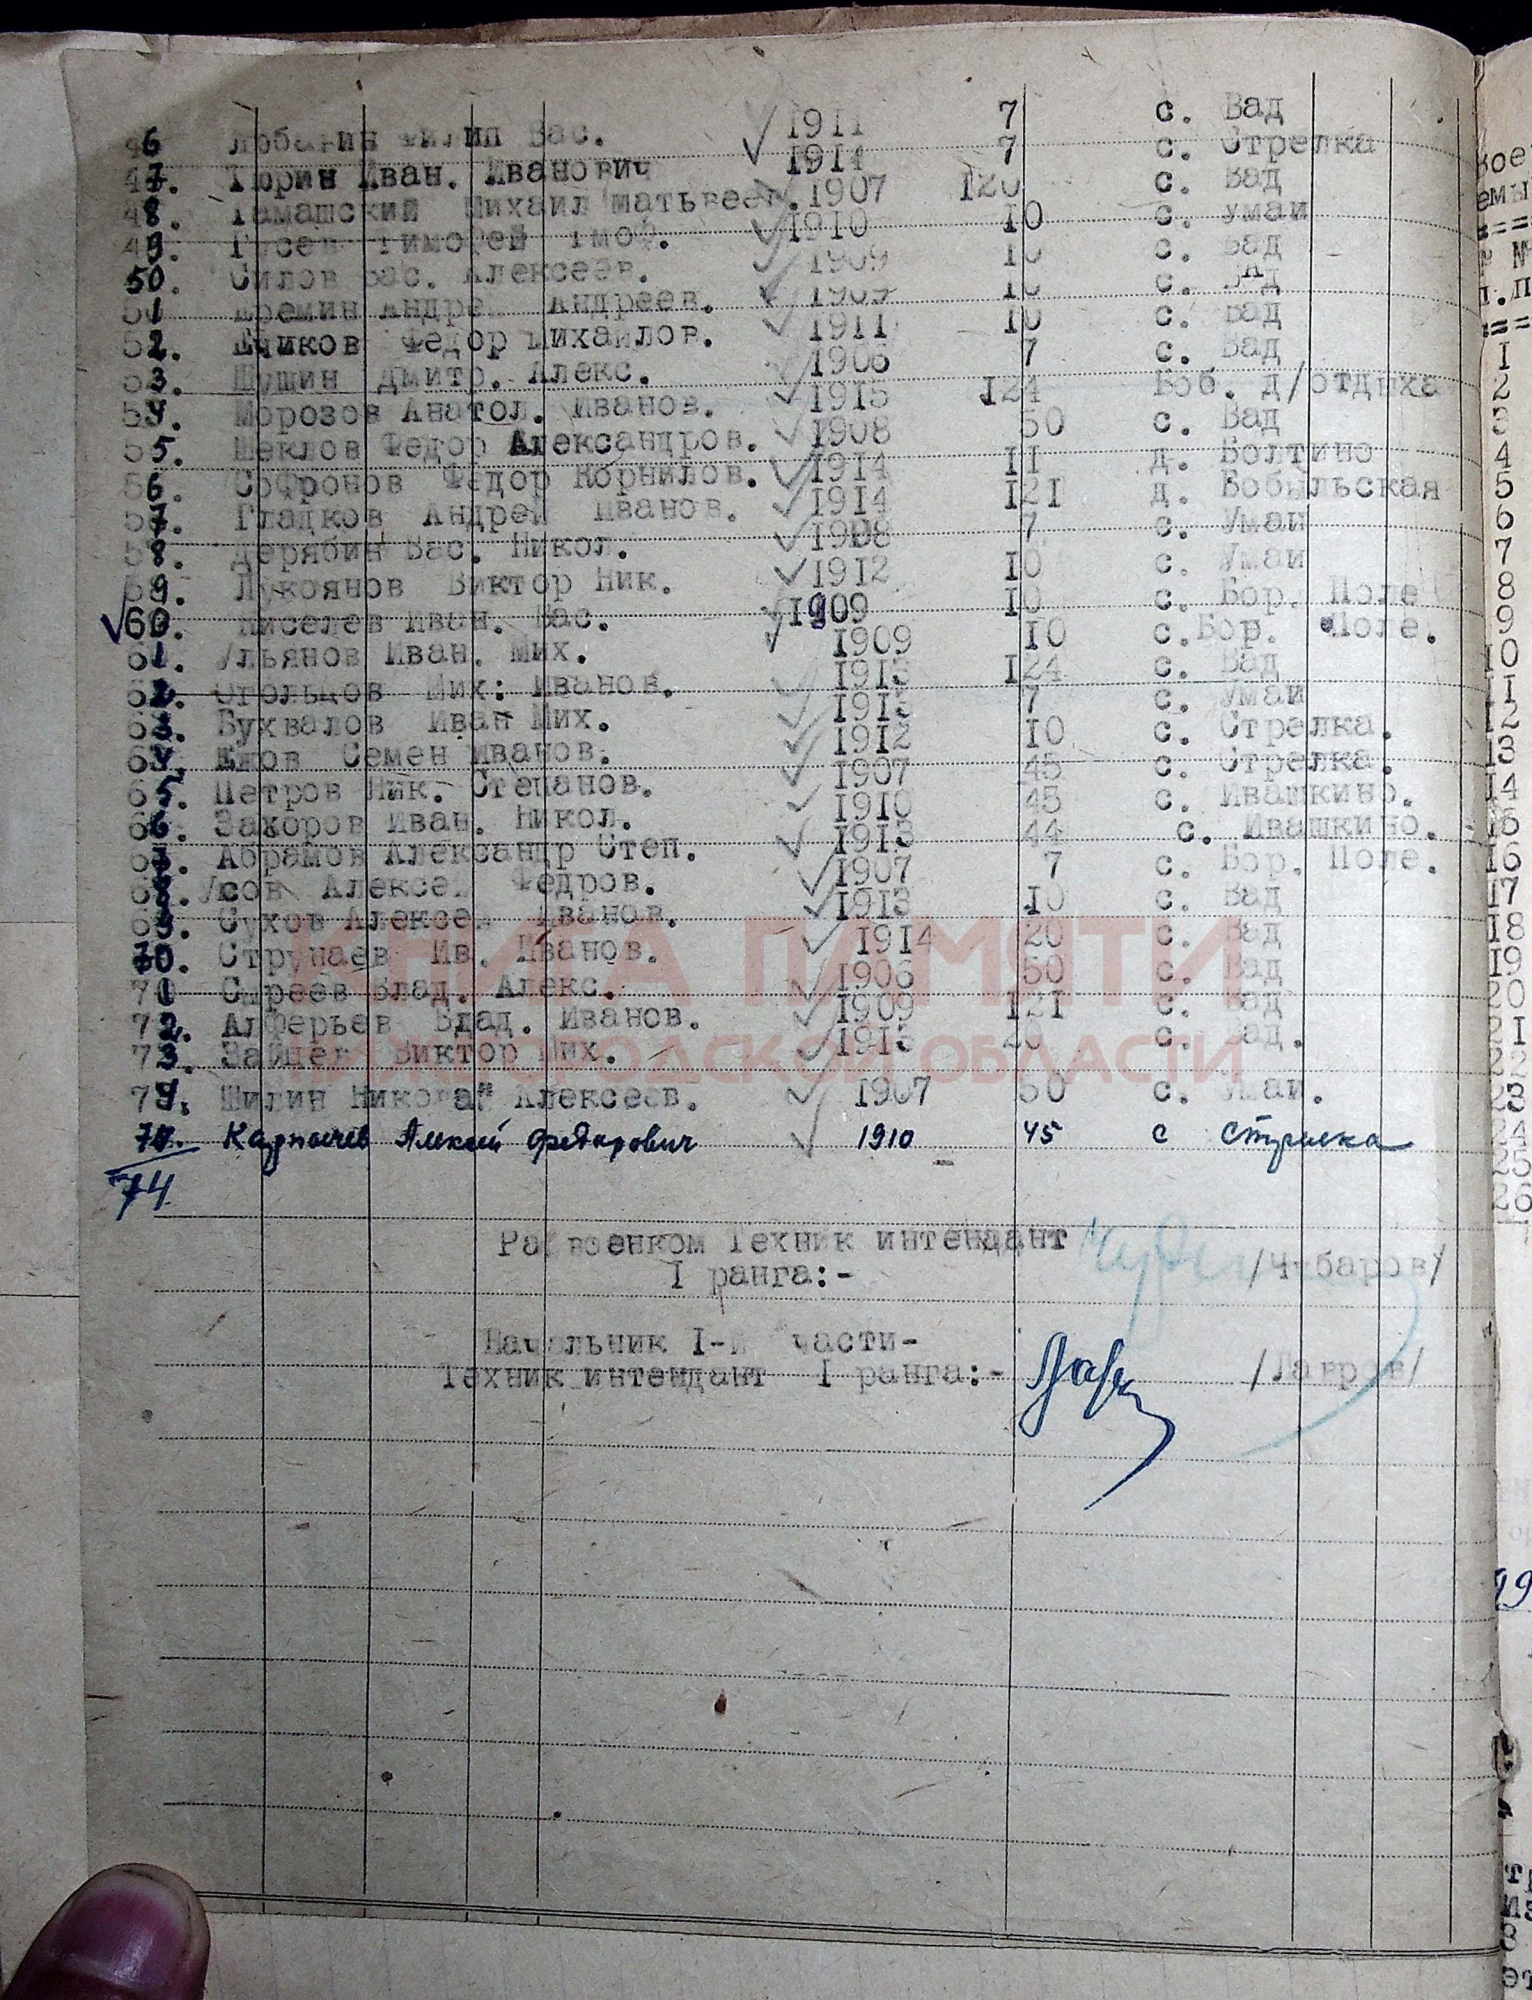 46 Любавин Филип Вас. 1911 7 с. Вад
47. Тюрин Иван. Иванович 1914 7 с. Стрелка
48. Тамашский Михаил Матьвеев. 1907 120 с. Вад
49 Гусев Тимофей Тмоф. 1910 10 с. Умай
50. Силов Вас. Алексеев. 1909 10 с. Вад
51 Еремин Андре Андреев. 1909 10 с. Вад
52. Ечиков Федор Михайлов. 1911 10 с. Вад
53. Шушин Дмитр. Алекс. 1906 7 с. Вад
54. Морозов Анатол. Иванов. 1915 124 Боб. д/отдыха
55. Шеклов Федор Александров. 1908 50 с. Вад
56. Софронов Федор Корнилов. 1914 11 д. Болтино
57. Гладков Андрей Иванов. 1914 121 д. Бобыльская
58. Дерябин Вас. Никол. 1908 7 с. Умай
59. Лукоянов Виктор Ник. 1912 10 с. Умай
60. Киселев Иван. Вас. 1909 10 с. Бор. Поле
61. Ульянов Иван. Мих. 1909 10 с. Бор. Поле.
62. Стольцов Мих: Иванов. 1913 124 с. Вад
63. Бухвалов Иван Мих. 1913 7 с. Умай
64. Енов Семен Иванов. 1912 10 с. Стрелка.
65. Петров Ник. Степанов. 1907 45 с. Стрелка.
66. Захоров Иван. Никол. 1910 45 с. Ивашкино.
67. Абрамов Александр Степ. 1913 44 с. Ивашкино.
68. Усов Алексе Федров. 1907 7 с. Бор. Поле.
69. Сухов Алексе Иванов. 1913 10 с. Вад
70. Струнаев Ив. Иванов. 1914 20 с. Вад
71 Сыреев Влад. Алекс. 1906 50 с. Вад
72. Алферьев Влад. Иванов. 1909 121 с. Вад
73. Зайцев Виктор Мих. 1915 20 с. Вад.
74. Шилин Николай Алексеев. 1907 50 с. Умай.
Карпычев Алексей Федорович 1910 45 с Стрелка
74
Райвоенком Техник интендант
I ранга:- /Чубаров/
Начальник I-й части-
Техник интендант I ранга:- /Лавров/
КНИГА ПАМЯТИ
НИЖГОРОДСКОЙ ОБЛАСТИ
1
2
3
4
5
6
7
8
9
10
11
12
13
14
15
16
17
18
19
20
21
22
23
24
25
26